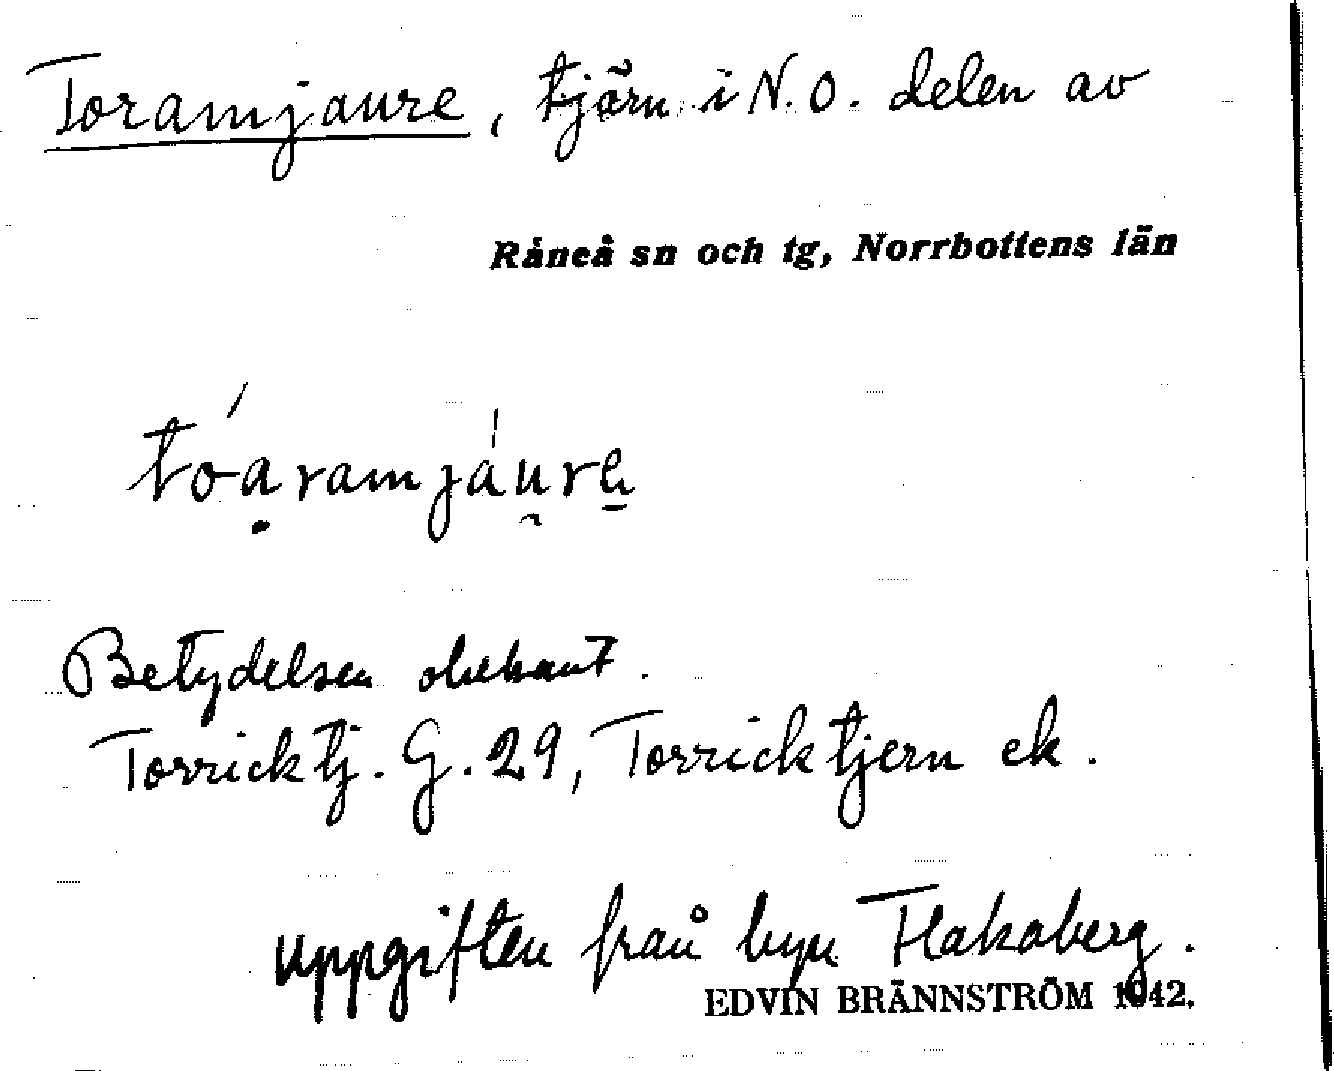 Toramjaure, tjärn i N.O. delen av
Råneå sn och tg, Norrbottens län
tóaramjáure
Betydelsen obekant.
Torrick tj. G. 29, Torrick tjern ek.
uppgiften från byn Flakaberg.
EDVIN BRÄNNSTRÖM 1942.